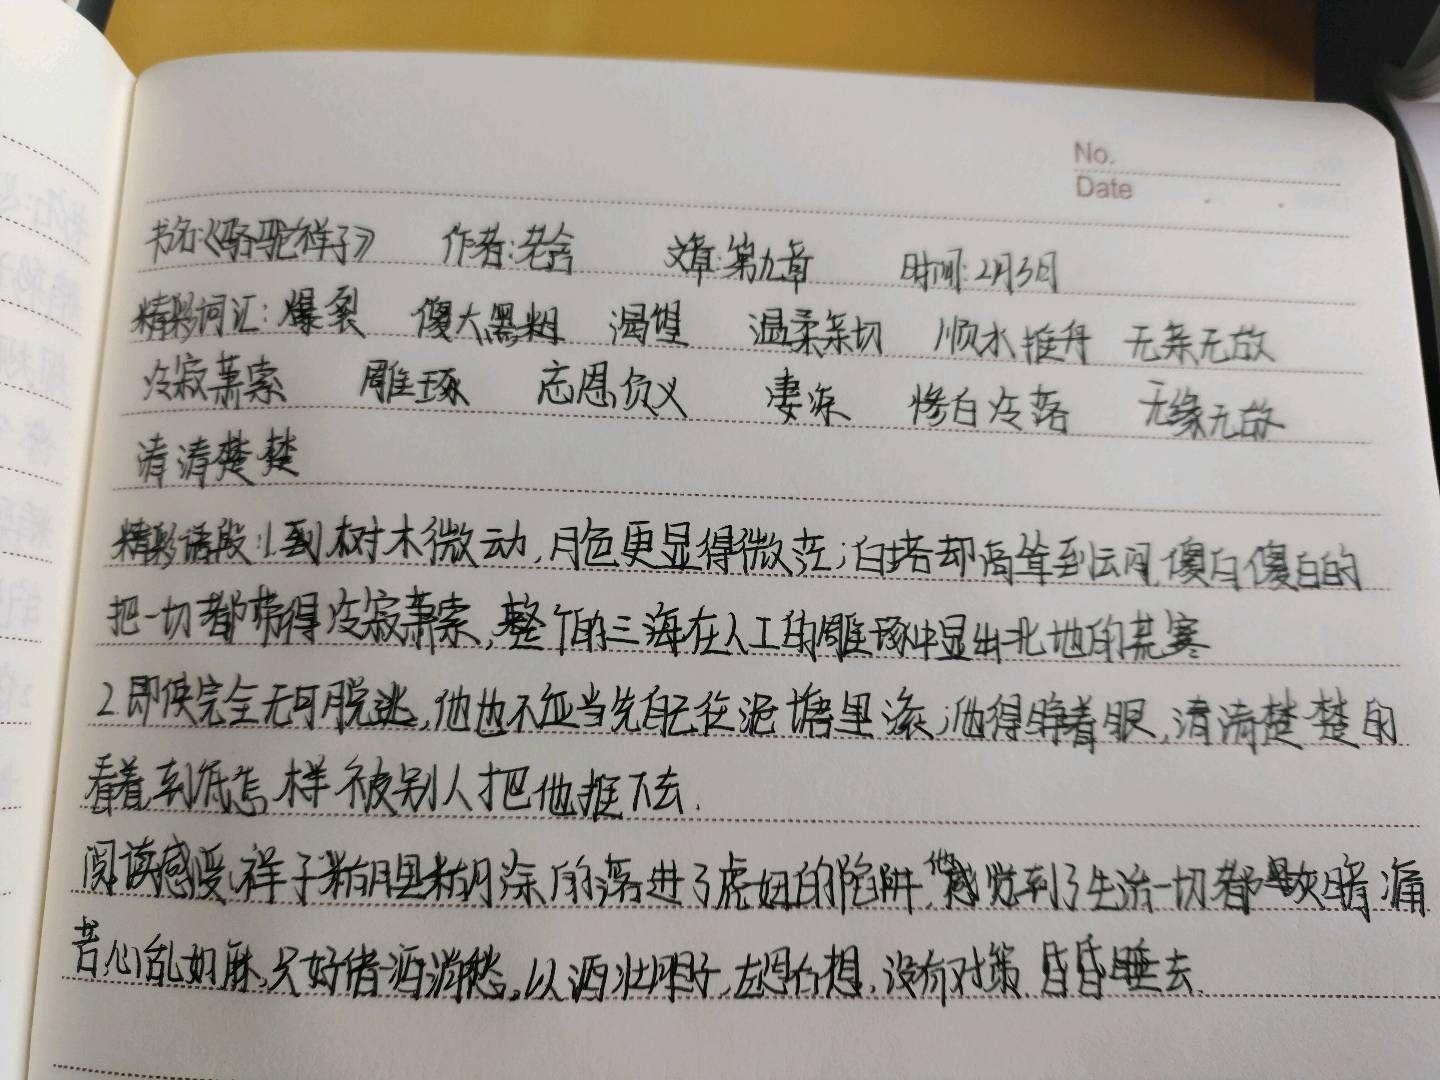 No.
Date
书名:《骆驼祥子》 作者:老舍 文章:第九章 时间:2月3日
精彩词汇:爆裂 傻大黑粗 渴望 温柔亲切 顺水推舟 无亲无故
冷寂萧索 雕琢 忘恩负义 凄凉 惨白冷落 无缘无故
清清楚楚
精彩语段:1.到树木微动,月色更显得微茫;白塔却高耸到云间,傻白傻白的
把一切都带得冷寂萧索,整个的三海在人工的雕琢中显出北地的荒寒
2.即使完全无可脱逃,他也不应当先自己往泥塘里滚;他得睁着眼,清清楚楚的
看着,到底怎样被别人把他推下去.
阅读感受:祥子糊里糊涂的落进了虎妞的陷阱,他感觉到了生活一切都是灰暗,痛
苦,心乱如麻,只好借酒消愁,以酒壮胆子,左思右想,没有对策.昏昏睡去.